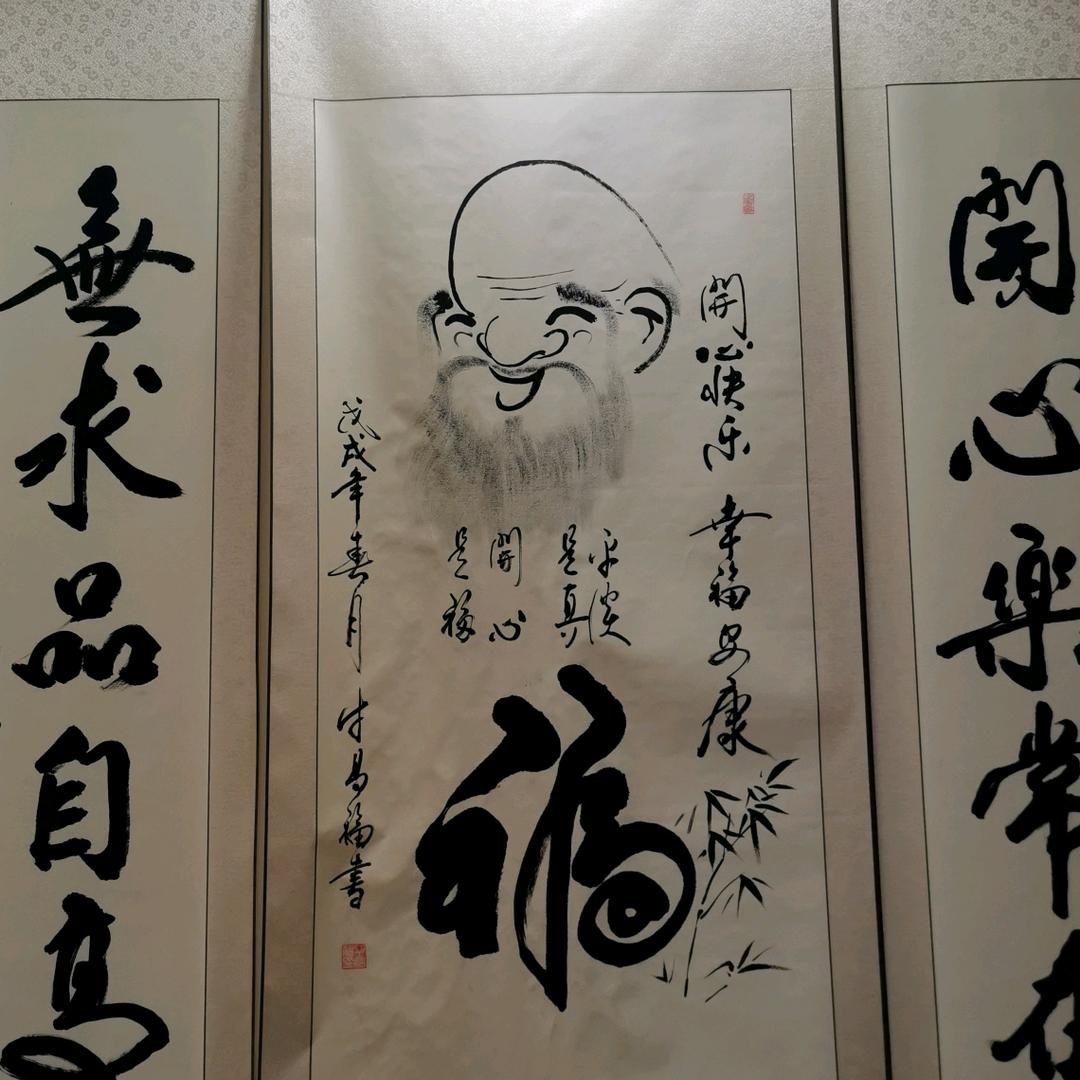 開心樂常在
開心快乐 幸福安康
平淡
是真
開心
是福
福
戊戌年春月
福書
無求品自高